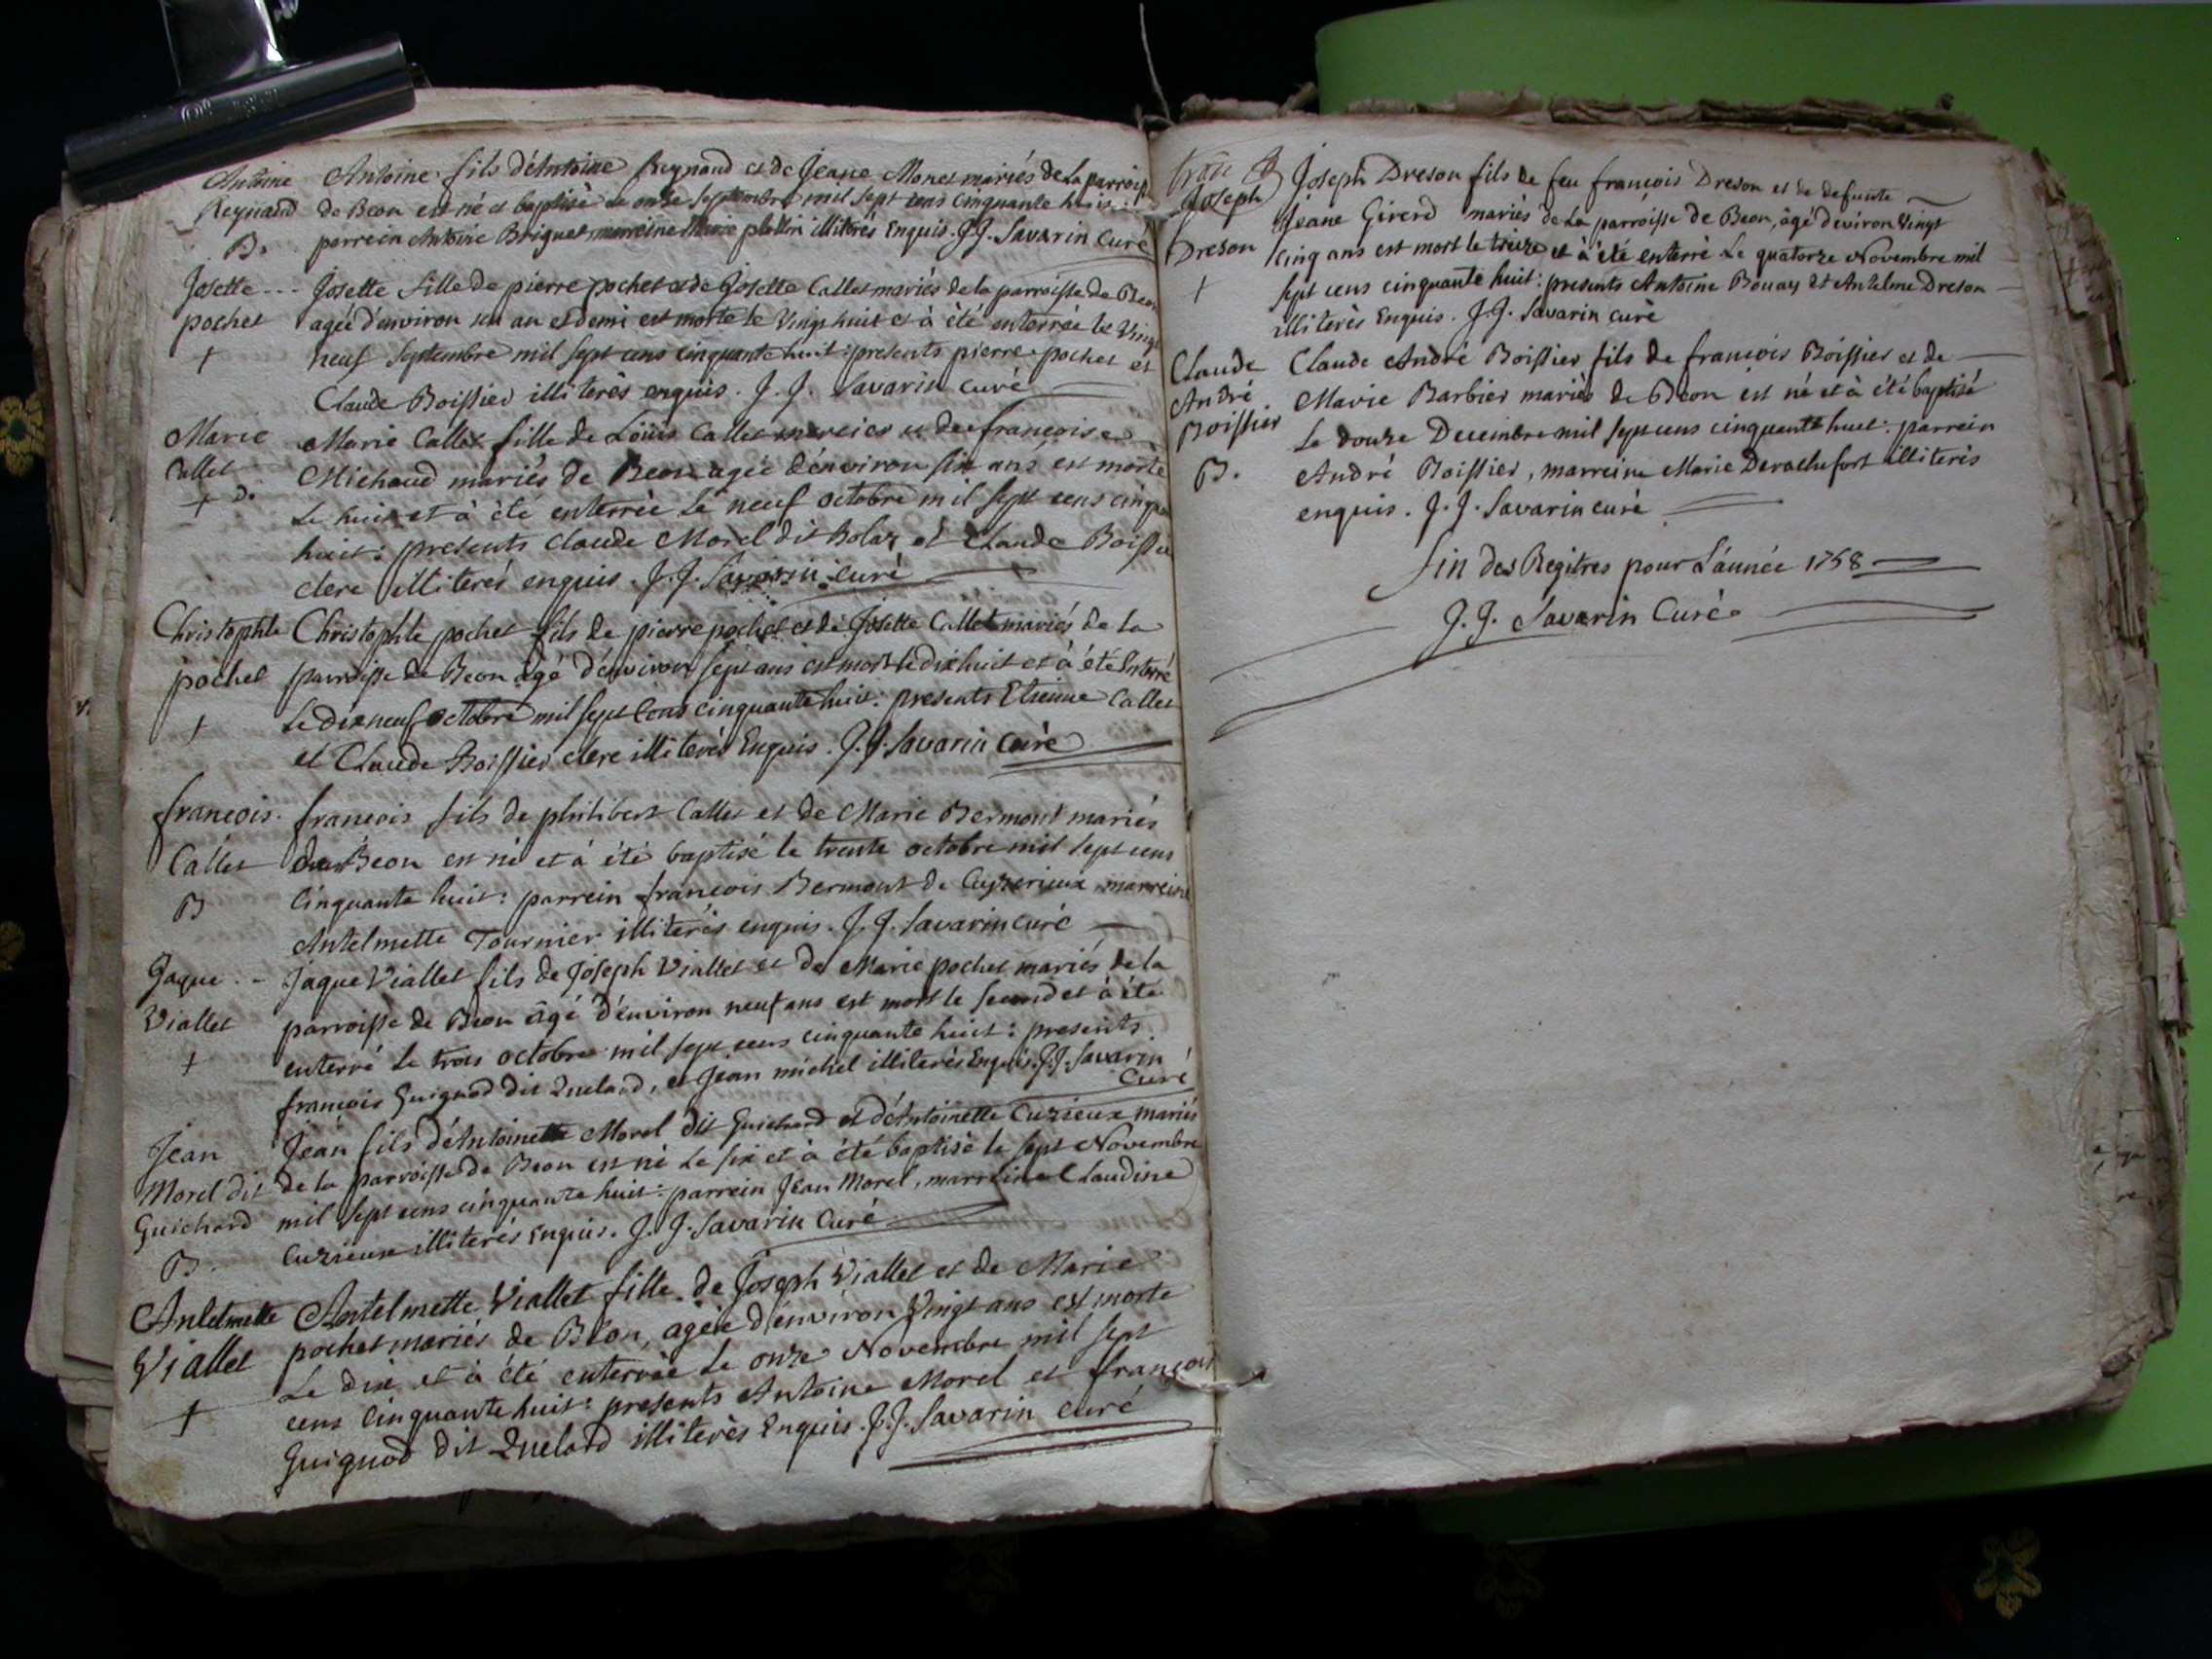 Antoine Reynaud B.
Antoine fils d'Antoine Reynaud et de Jeane Monet mariés de la parroisse
de Beon est né et baptisé le onze Septembre mil sept cens cinquante huit:
parrein Antoine Briquet marreine Marie illiterés Enquis. J.J. Savarin Curé
Josette pochet +
Josette fille de pierre pochet et de Josette Callet mariés de la parroisse de Beon
agée d'environ un an et demi est morte le Vingt huit et à été enterrée le Vingt
neuf Septembre mil sept cens cinquante huit: presents pierre pochet et
Claude Boissier illiterés enquis. J.J. Savarin Curé
Marie Callet + D.
Marie Callet fille de Loüis Callet et de françoise
Michaud mariés de Beon agée d'environ six ans est morte
Le huit et à été enterrée Le neuf octobre mil sept cens cinqua
huit: presents Claude Morel dit Bolaz et Claude Boissier
clerc illiterés enquis. J.J. Savarin Curé
Christophle pochet +
Christophle pochet fils de pierre pochet et de Josette Callet mariés de La
parroisse de Beon agé d'environ sept ans est mort le dix huit et à été Enterré
Le dix neuf octobre mil sept Cens cinquante huit: presents Etienne Callet
et Claude Boissier clerc illiterés Enquis. J.J. Savarin Curé
francois. Callet B
francois fils de philibert Callet et de Marie Bermont mariés
de Beon est né et à été baptisé le trente octobre mil sept cens
Cinquante huit: parrein francois Bermont de Cuyzerieux, marreine
Antelmette Tournier illiterés enquis. J.J. Savarin Curé
Jaque Viallet +
Jaque Viallet fils de Joseph Viallet et de Marie pochet mariés de la
parroisse de Beon âgé d'environ neuf ans est mort le second et à été
enterré Le trois octobre mil sept cens cinquante huit: presents
francois Guignod dit Quelard, et Jean michel illiterés Enquis. J.J. Savarin
Curé
Jean Morel dit Guichard B.
Jean fils d'Antoinette Morel dit Guichard et d'Antoinette Cuzieux mariés
de la parroisse de Beon est né Le six et à été baptisé le sept Novembre
mil sept cens cinquante huit: parrein Jean Morel, marreine Claudine
Cuzieux illiterés Enquis. J.J. Savarin Curé
Antelmette Viallet +
Antelmette Viallet fille de Joseph Viallet et de Marie
pochet mariés de Beon, agée d'environ Vingt ans est morte
Le dix et à été enterrée Le onze Novembre mil sept
cens Cinquante huit: presents Antoine Morel et françois
Guignod dit Quelard illiterés Enquis. J.J. Savarin Curé
Joseph Dreson +
Joseph Dreson fils de feu francois Dreson et de defunte
Jeane Girerd mariés de La parroisse de Beon, âgé d'eviron Vingt
cinq ans est mort le treize et à été enterré Le quatorze Novembre mil
sept cens cinquante huit: presents Antoine Bouay et Antelme Dreson
illiterés Enquis. J.J. Savarin Curé
Claude André Boissier B.
Claude André Boissier fils de francois Boissier et de
Marie Barbier mariés de Beon est né et à été baptisé
Le douze Decembre mil sept cens cinquante huit: parrein
André Boissier, marreine Marie Derochefort illiterés
enquis. J.J. Savarin curé
fin des Regitres pour L'année 1758
J.J. Savarin Curé